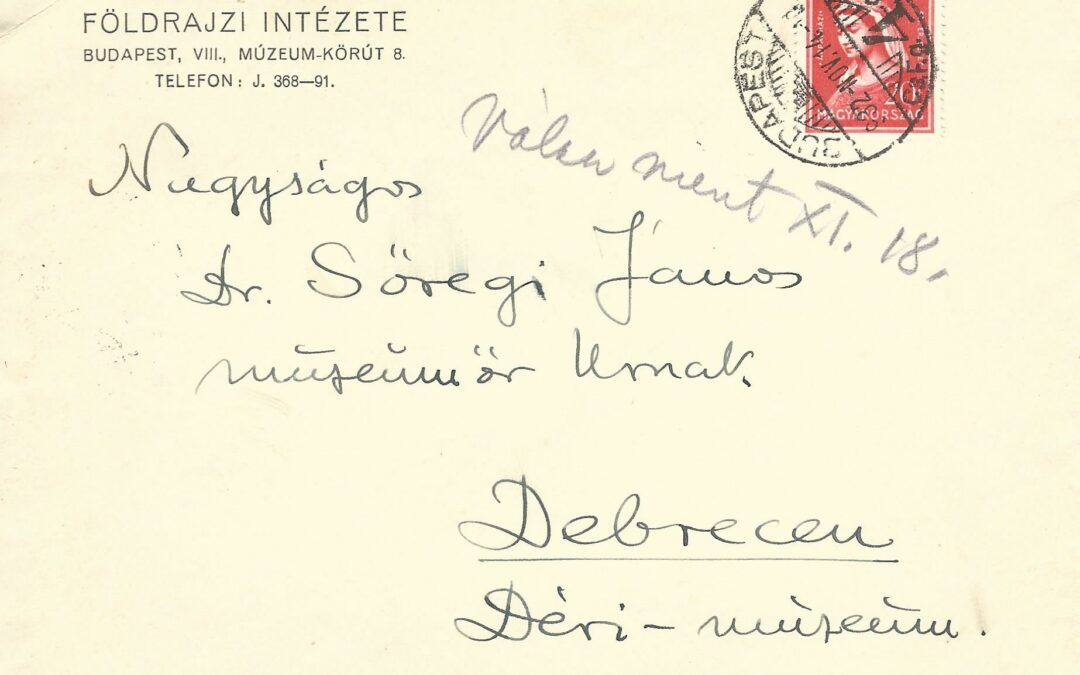 FÖLDRAJZI INTÉZETE
BUDAPEST, VIII., MÚZEUM-KÖRÚT 8.
TELEFON: J. 368—91.
BUDAPEST
20
MAGYARORSZÁG
Válasz ment XI. 18.
Nagyságos
Dr. Sőregi János
múzeumőr Urnak
Debrecen
Déri-múzeum.